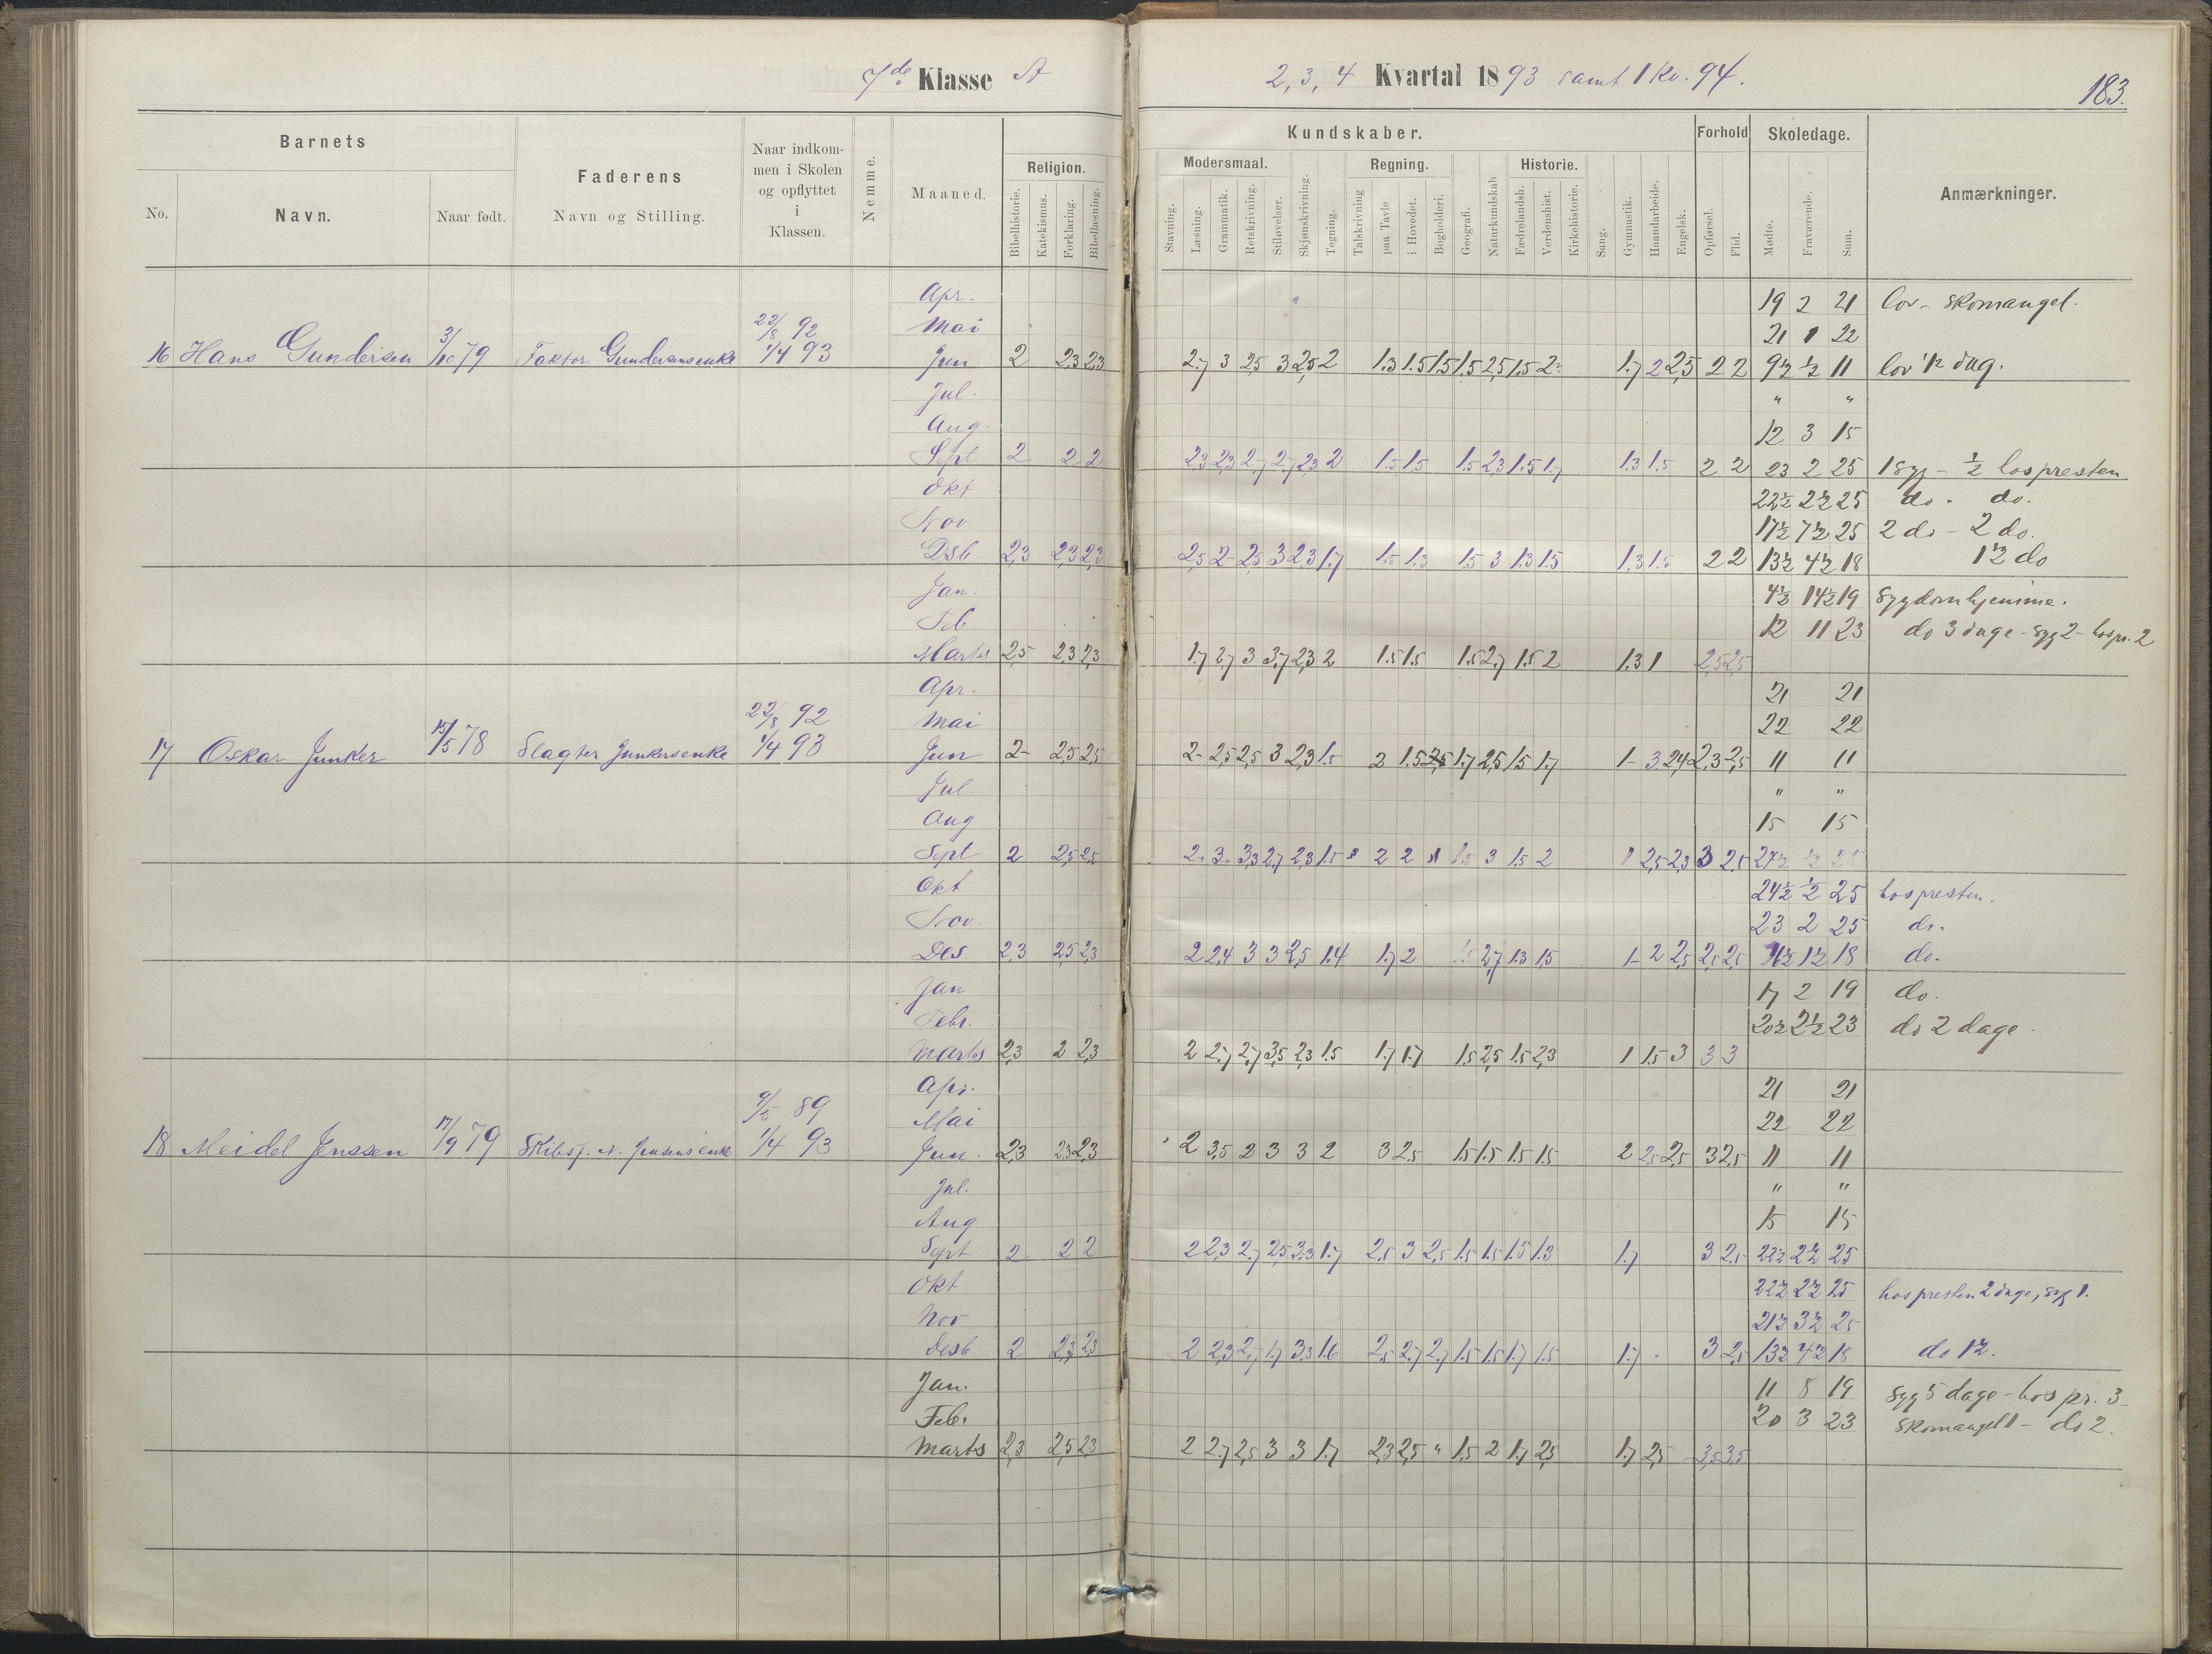 7de Klasse A
2, 3, 4 Kvartal 1893 samt 1 Kv. 94.
183.
Barnets
No.
Navn.
Naar født.
Faderens
Navn og Stilling.
Naar indkom-
men i Skolen
og opflyttet
i
Klassen.
Nemme.
Maaned.
Religion.
Bibelhistorie.
Katekismus.
Forklaring.
Bibellæsning.
Kundskaber.
Modersmaal.
Stavning.
Læsning.
Grammatik.
Retskrivning.
Stiløvelser.
Skjønskrivning.
Tegning.
Regning.
Talskrivning
paa Tavle
i Hovedet.
Bogholderi.
Geografi.
Naturkundskab
Historie.
Fædrelandsh.
Verdenshist.
Kirkehistorie.
Sang.
Gymnastik.
Haandarbeide.
Engelsk.
Forhold
Opførsel.
Flid.
Skoledage.
Mødte.
Fraværende.
Sum.
Anmærkninger.
Apr. 19 2 21 lov - skomangel.
22/8 92 Mai 21 1 22
16 Hans Gundersen 3/10 79 Faktor Gundersens enke 1/4 93 Jun 2 2,3 2,3 2.7 3 2,5 3 2,5 2 1.3 1.5 1.5 1.5 2,5 1.5 2- 1.7 2 2,5 2 2 9½ ½ 11 lov ½ dag.
Jul. " "
Aug. 12 3 15
Sept 2 2 2 2,3 2,3 2,7 2,7 2,3 2 1.5 1.5 1.5 2,3 1.5 1.7 1.3 1.5 2 2 23 2 25 1 syg - ½ hos presten
Okt 22½ 2½ 25 do. do.
Nov 17½ 7½ 25 2 do - 2 do.
Dsb 2,3 2,3 2,3 2,5 2- 2,5 3 2,3 1.7 1.5 1.3 1.5 3 1.3 1.5 1.3 1.5 2 2 13½ 4½ 18 1½ do
Jan. 4½ 14½ 19 Sygdom hjemme.
Feb 12 11 23 do 3 dage - syg 2 - hos pr. 2
Marts 2,5 2,3 2,3 1.7 2,7 3 3,7 2,3 2 1.5 1.5 1.5 2,7 1.5 2 1.3 1 2,5 2,5
Apr. 21 21
22/8 92 Mai 22 22
17 Oskar Junker 15/5 78 Slagter Junkers enke 1/4 93 Jun 2- 2,5 2,5 2- 2,5 2,5 3 2,3 1.5 2 1.5 1.7 2,5 1.5 1.7 1- 3 2,4 2,3 2,5 11 11
Jul " "
Aug 15 15
Sept 2 2,5 2,5 2+ 3+ 3,3 2,7 2,3 1.5 2 2 1.5 3 1.5 2 1 2,5 2,3 3 2,5 ½ 25
Okt 24½ ½ 25 hos presten.
Nov. 23 2 25 do.
Des. 2,3 2,5 2,3 2 2,4 3 3 2,5 1.4 1.7 2 1.5 2,7 1.3 1.5 1- 2 2,5 2,5 2,5 16½ 1½ 18 do.
Jan 17 2 19 do.
Febr. 20½ 2½ 23 do 2 dage
Marts 2,3 2 2,3 2 2,7 2,7 3,5 2,3 1.5 1.7 1.7 1.5 2,5 1.5 2,3 1 1.5 3 3 3
Apr. 21 21
89 Mai 22 22
18 Meidel Jenssen 17/9 79 Skibsf. N. Jensens enke 1/4 93 Jun. 2,3 2,3 2,3 2 3,5 3 3 3 2 3 2,5 1.5 1.5 1.5 1.5 2 2,5 2,5 3 2,5 11 11
Jul. " "
Aug 15 15
Sept 2 2 2 2 2,3 2,7 2,5 3,3 1.7 2,5 3 2,5 1.5 1.5 1.5 1.3 1.7 3 2,5 22½ 2½ 25
Okt 22½ 2½ 25 hos presten 2 dage, syg 1.
Nov 21½ 3½ 25
Desb 2 2,3 2,3 2 2,3 2,7 1.7 3,3 1.6 2,5 2,7 2,7 1.5 1.5 1.7 1.5 1.7 - 3 2,5 13½ 4½ 18 do 1½.
Jan. 11 8 19 Syg 5 dage - hos pr. 3-
Feb. 20 3 23 skomangel 1 - do 2.
Marts 2,3 2,5 2,3 2 2,7 2,5 3 3 1.7 2,3 2,5 " 1.5 2 1.7 2,5 1.7 2,5 3,5 3,5